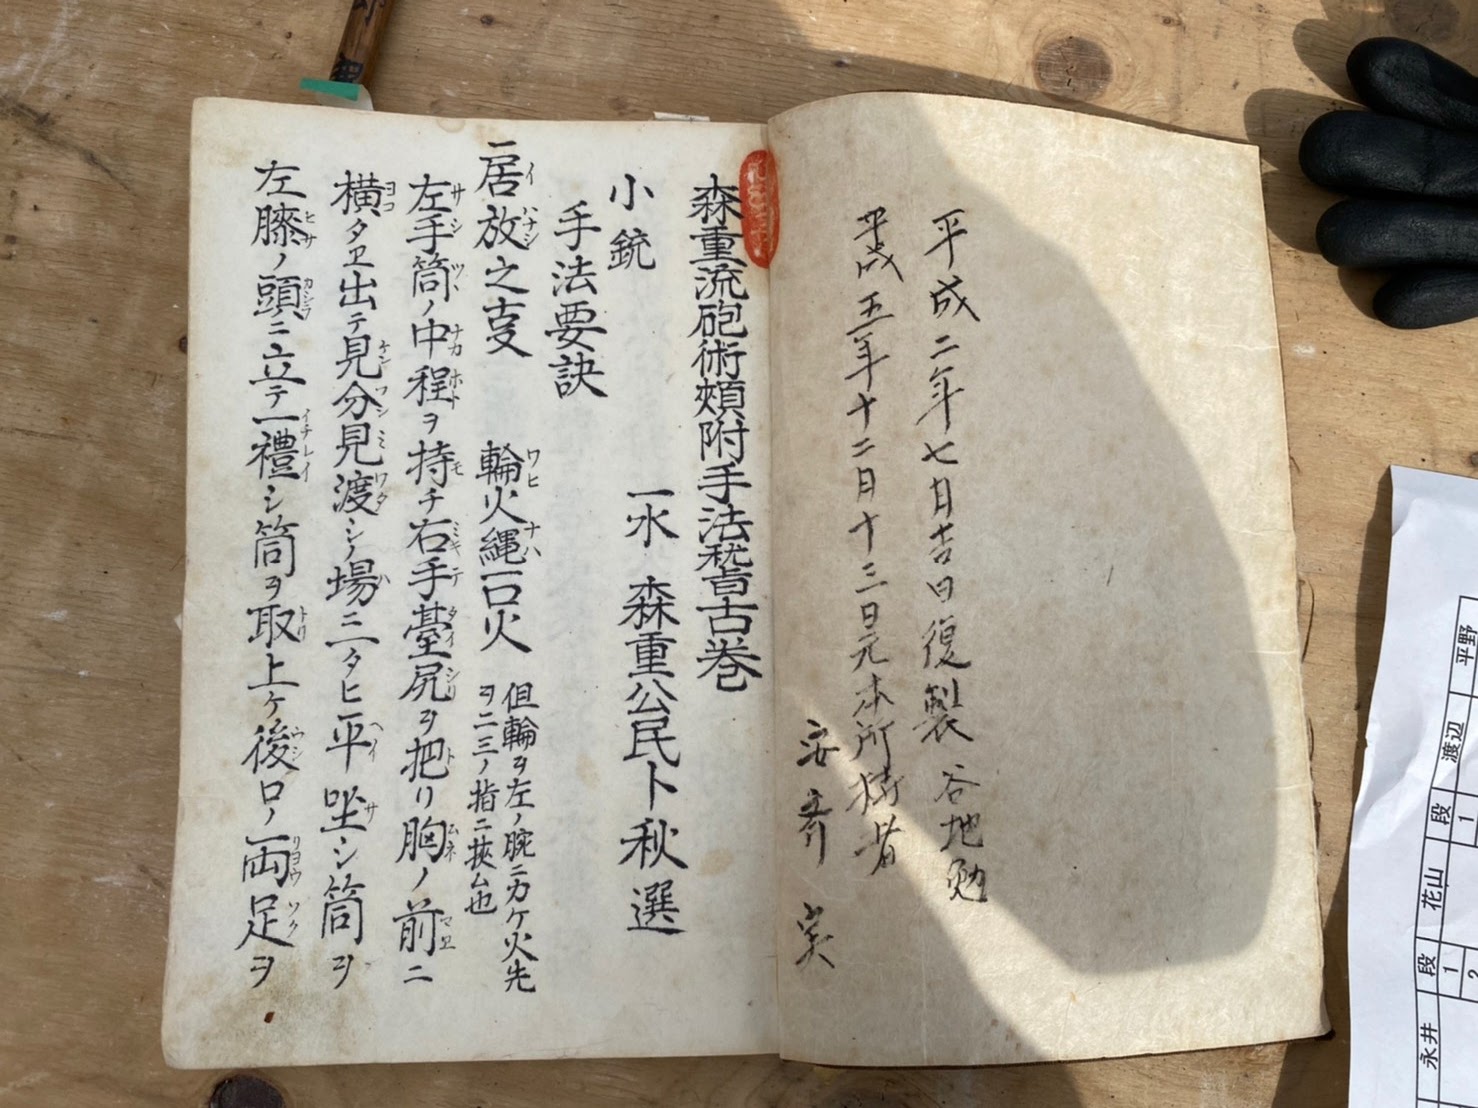 平成二年七月吉日復製 谷地勉
平成五年十二月十三日元本所持者
安斉 実
森重流砲術頬附手法稽古巻
小銃
一水 森重公民卜秋選
手法要訣
一居放之叓 輪火縄一口火 但輪ヲ左ノ腕ニカケ火先
ヲ二三ノ指ニ挾ム也
左手筒ノ中程ヲ持チ右手臺尻ヲ把リ胸ノ前ニ
横タヱ出テ見分見渡シノ場ニ一タヒ平坐シ筒ヲ
左膝ノ頭ニ立テ一禮シ筒ヲ取上ケ後口ノ両足ヲ
平野
渡辺 段 1
花山 段 1 2
永井